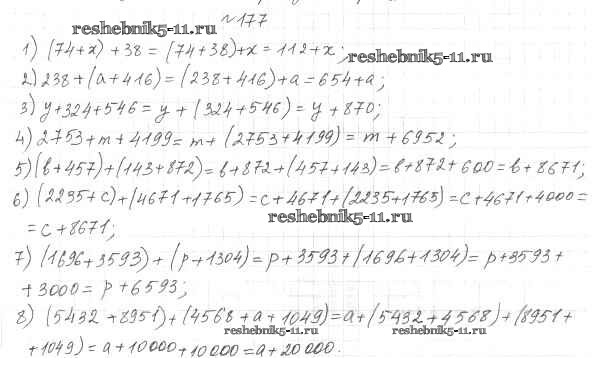 №177
reshebnik5-11.ru
1) (74+x) + 38 = (74+38)+x = 112+x; reshebnik5-11.ru
2) 238 + (a+416) = (238+416)+a = 654+a;
3) y+324+546 = y + (324+546) = y + 870;
4) 2753+m+4199 = m+(2753+4199) = m+6952;
5) (b+457)+(143+872) = b+872+(457+143) = b+872+600 = b+8671;
6) (2235+c)+(4671+1765) = c+4671+(2235+1765) = c+4671+4000 =
reshebnik5-11.ru
= c+8671;
7) (1696+3593) + (p+1304) = p+3593+(1696+1304) = p+3593+
+3000 = p+6593;
8) (5432+8951)+(4568+a+1049) = a+(5432+4568)+(8951+
reshebnik5-11.ru reshebnik5-11.ru
+1049) = a+10000+10000 = a+20000.